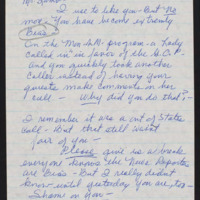 I used to like you - But no
more. You have become extremely
Bias
On the Mon. a.m. program - a lady
called in in favor of the U.S.A.
and you quickly took another
caller instead of having your
guests make comments on her
call - Why did you do that? -
I remember it was a out of State
call - But that still wasnt
fair of you -
Please give us a break
everyone knows the News Reporters
are Bias - But I really didnt
know until yesterday you are too -
Shame on you -